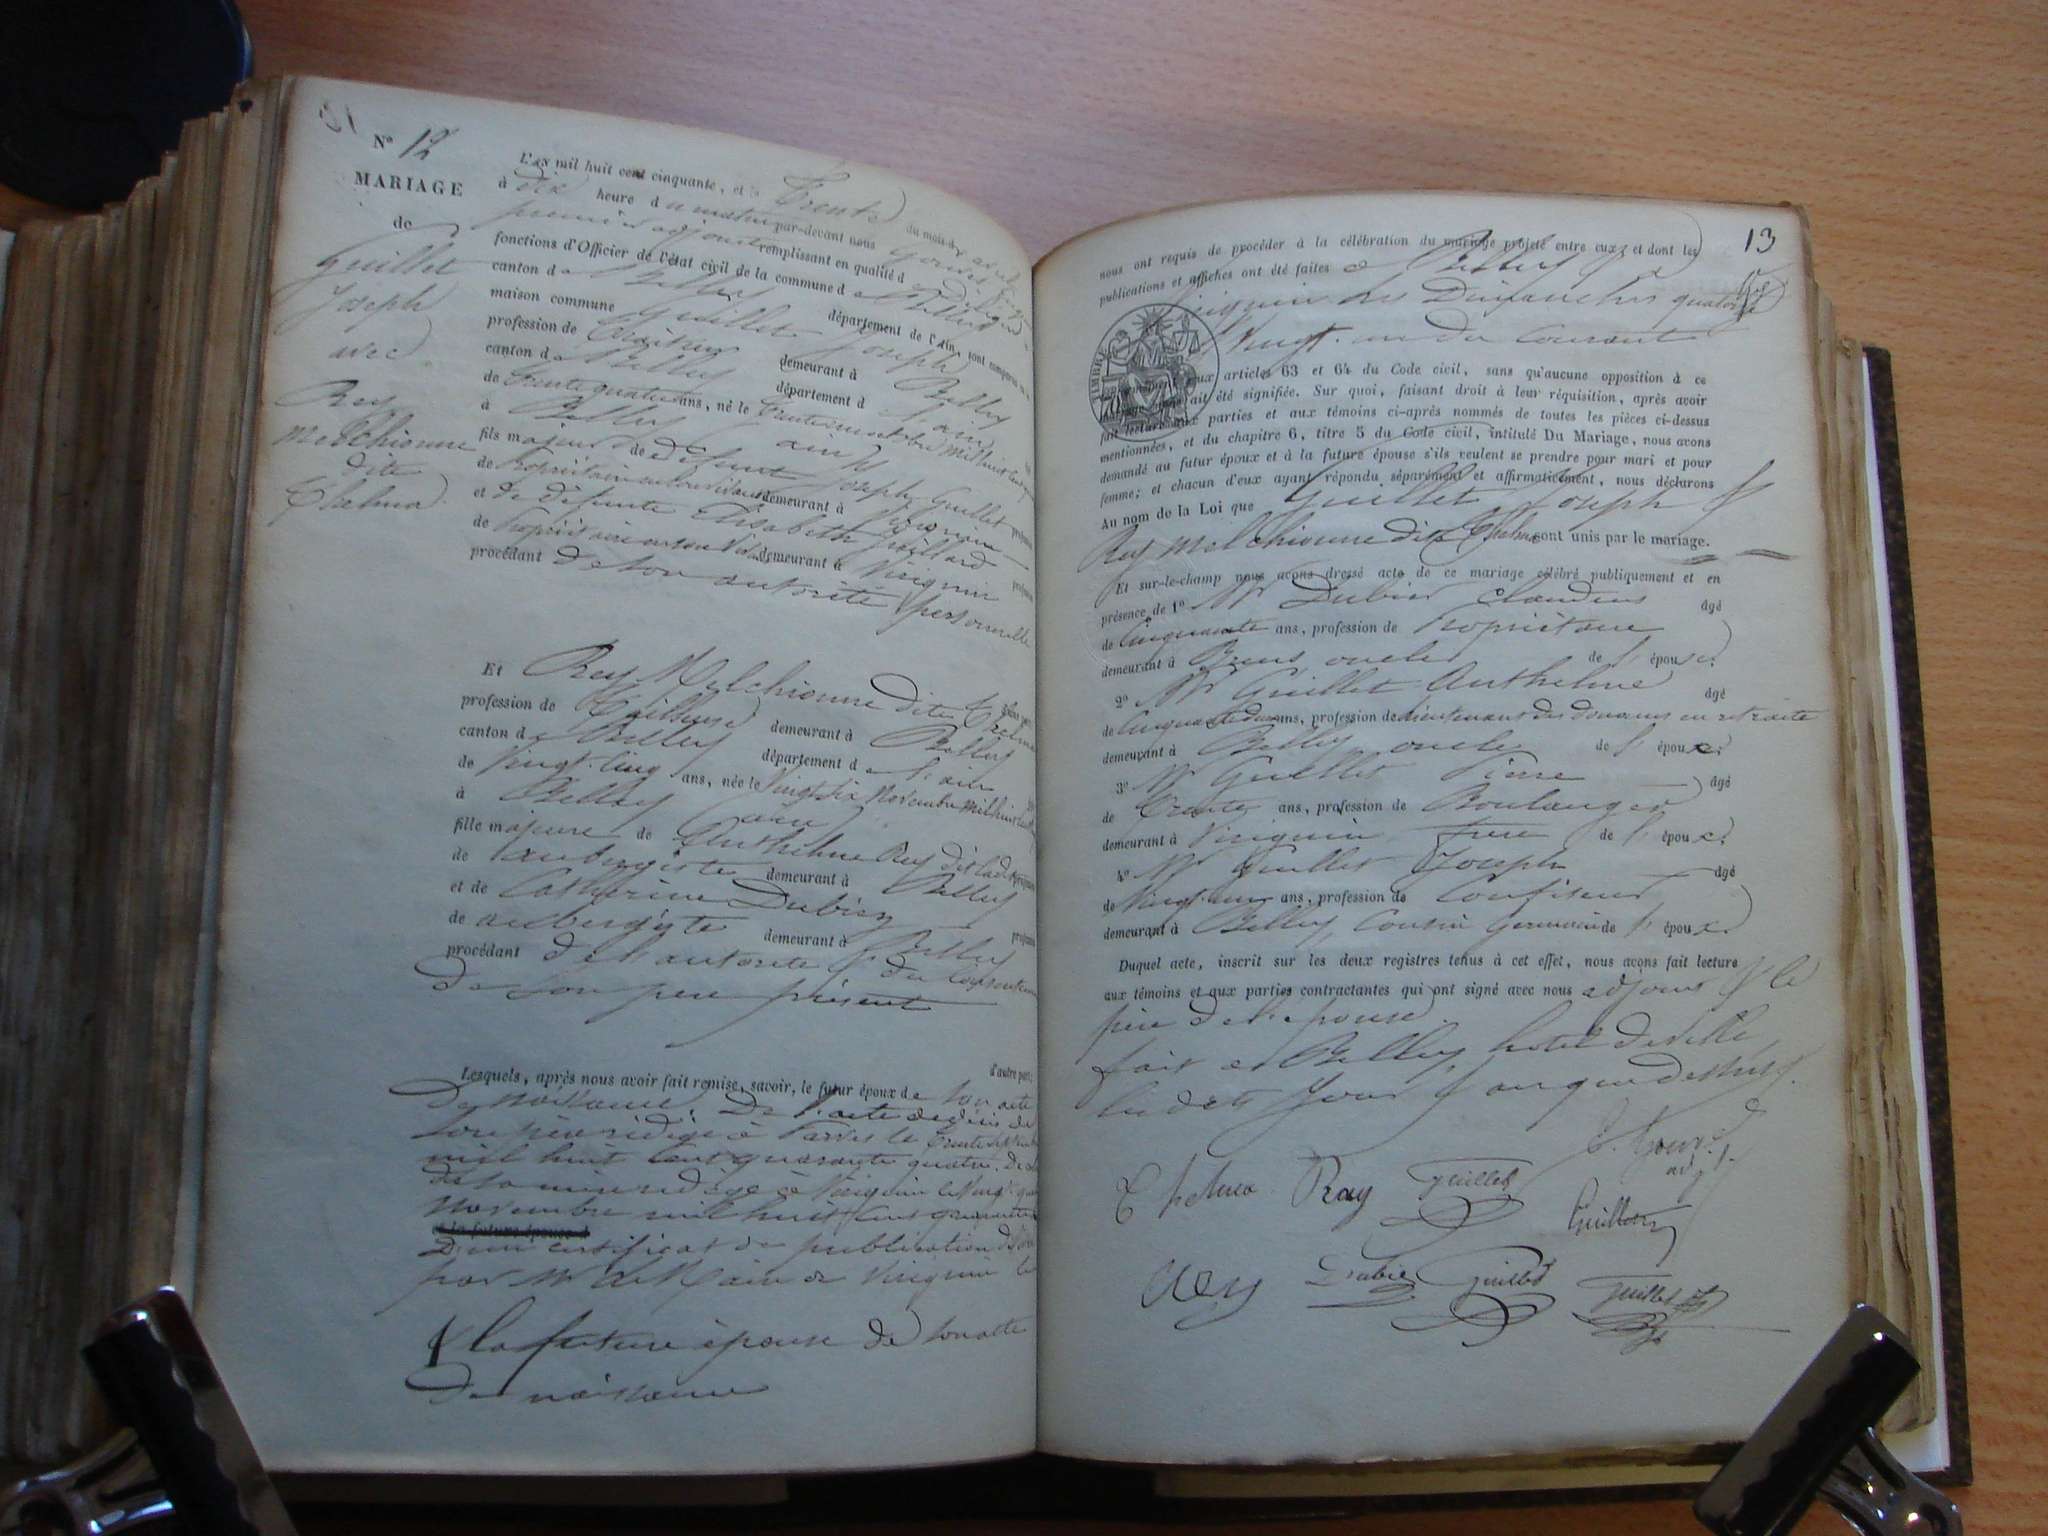 N° 12
MARIAGE
de
Guillet
Joseph
avec
Rey
Melchionne
dite
Thelma
L'an mil huit cent cinquante, et le Trente du mois d
à dix heure du matin par-devant nous
premier adjoint remplissant en qualité d
fonctions d'Officier de l'état civil de la commune de Belley
canton de Belley département de l'Ain, sont comparus en
maison commune Guillet Joseph
profession de demeurant à Belley
canton de Belley département de l'ain
de Trente quatre ans, né le
à Belley ain
fils majeur de défunt Joseph Guillet
de Propriétaire demeurant à
et de défunte Elisabeth profession
de Propriétaire demeurant à Virignin
procédant de son autorité personnelle
Et Rey Melchionne dite Thelma
profession de Tailleuse demeurant à Belley
canton de Belley département de l'ain
de Vingt-cinq ans, née le Vingt six Novembre mil huit cent
à Belley ain
fille majeure de Anthelme Rey dit
de aubergiste demeurant à Belley
et de Catherine Dubiez
de aubergiste demeurant à Belley
procédant de l'autorité & du consentement
de son père présent
d'autre part;
Lesquels, après nous avoir fait remise, savoir, le futur époux de son acte
de naissance, De l'acte de décès de
son père rédigé à le Trente
mil huit cent quarante quatre, De
de sa mère rédigé à Virignin le Vingt
Novembre mil huit cent quarante
et la future épouse d
D'un certificat de publication
par Mr le Maire de Virignin le
& la future épouse de son acte
de naissance
13
nous ont requis de procéder à la célébration du mariage projeté entre eux, et dont les
publications et affiches ont été faites à Belley &
Virignin les Dimanches quatorze
Vingt-un du Courant
TIMBRE
aux articles 63 et 64 du Code civil, sans qu'aucune opposition à ce
ait été signifiée. Sur quoi, faisant droit à leur réquisition, après avoir
fait lecture aux parties et aux témoins ci-après nommés de toutes les pièces ci-dessus
mentionnées, et du chapitre 6, titre 5 du Code civil, intitulé Du Mariage, nous avons
demandé au futur époux et à la future épouse s'ils veulent se prendre pour mari et pour
femme; et chacun d'eux ayant répondu séparément et affirmativement, nous déclarons
Au nom de la Loi que Guillet Joseph &
Rey Melchionne dite Thelma sont unis par le mariage.
Et sur-le-champ nous avons dressé acte de ce mariage célébré publiquement et en
présence de 1° Mr Dubiez Claudius âgé
de Cinquante ans, profession de Propriétaire
demeurant à Brens oncle de l'épouse.
2° Mr Guillet Anthelme âgé
de Cinquante deux ans, profession de lieutenant des douanes en retraite
demeurant à Belley oncle de l'époux.
3° Mr Guillet Pierre âgé
de Trente ans, profession de Boulanger
demeurant à Virignin frère de l'époux.
4° Mr Guillet Joseph âgé
de Vingt-un ans, profession de Confiseur
demeurant à Belley, Cousin Germain de l'époux.
Duquel acte, inscrit sur les deux registres tenus à cet effet, nous avons fait lecture
aux témoins et aux parties contractantes qui ont signé avec nous adjoint & le
père de l'épouse.
fait à Belley, hotel de Ville
lesdits jour & an que dessus.
adj.
Thelma Rey Guillet
Guillet
Rey Dubiez Guillet Guillet